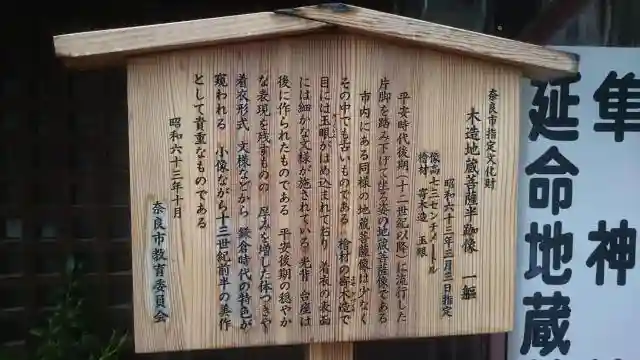 奈良市指定文化財
木造地蔵菩薩半跏像 一軀
昭和六十三年三月三日指定
像高 七三センチメートル
檜材 寄木造 玉眼
平安時代後期（十二世紀以降）に流行した
片脚を踏み下げて坐る姿の地蔵菩薩像である
市内にある同様の地蔵菩薩像は少なく
その中でも古いものである 檜材の寄木造で
目には玉眼がはめ込まれており 着衣の表面
には細かな文様が施されている 光背 台座は
後に作られたものである 平安後期の穏やか
な表現を残すものの 厚みを増した体つきや
着衣形式 文様などから 鎌倉時代の特色が
窺われる 小像ながら十三世紀前半の美作
として貴重なものである
昭和六十三年十月
奈良市教育委員会
隼 神
延命地蔵